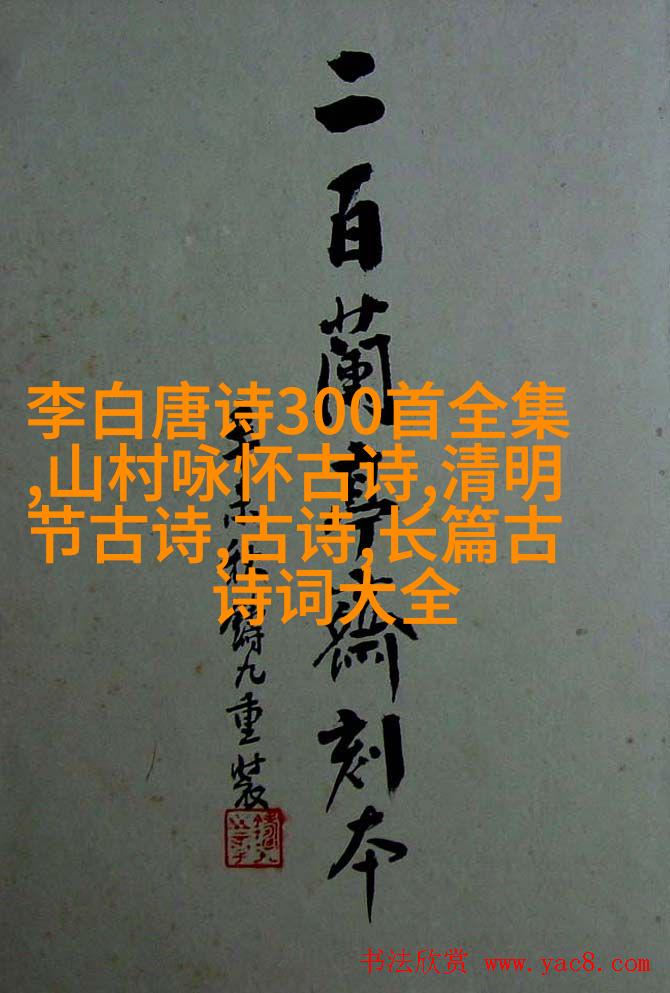 二百蘭亭齋刻本
未秋九重裝
李白唐诗300首全集
,山村咏怀古诗,清明
节古诗,古诗,长篇古
诗词大全
书法欣赏 www.yac8.com